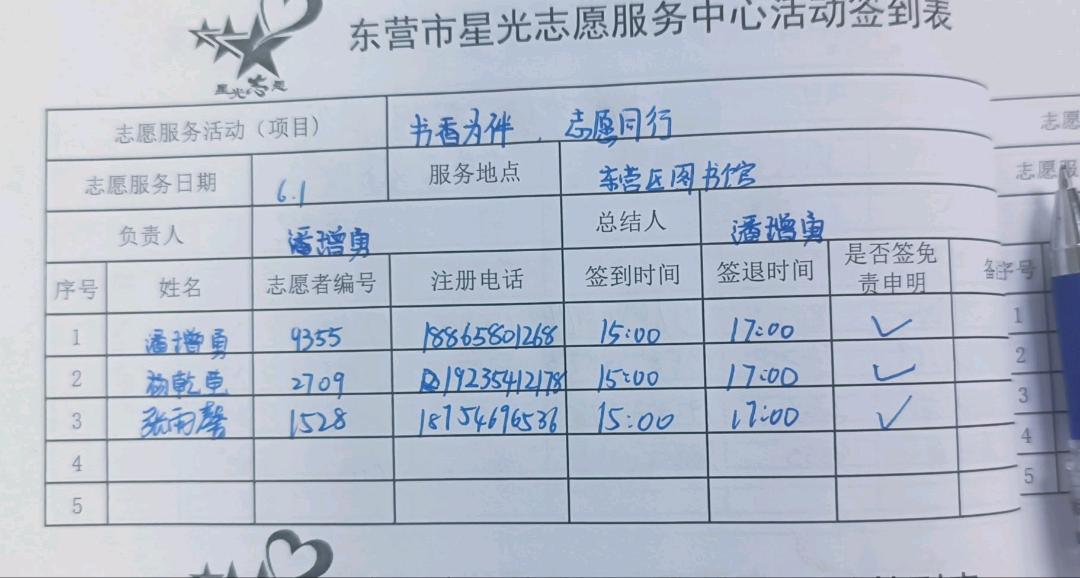 东营市星光志愿服务中心活动签到表
星光志愿
志愿服务活动（项目） 书香为伴，志愿同行
志愿服务日期 6.1 服务地点 东营区图书馆
负责人 潘增勇 总结人 潘增勇
序号 姓名 志愿者编号 注册电话 签到时间 签退时间 是否签免责申明 备
1 潘增勇 9355 18865801268 15:00 17:00 ✓
2 2709 19235412178 15:00 17:00 ✓
3 张雨馨 1528 18754696536 15:00 17:00 ✓
4
5
志愿
志愿服
序号
1
2
3
4
5